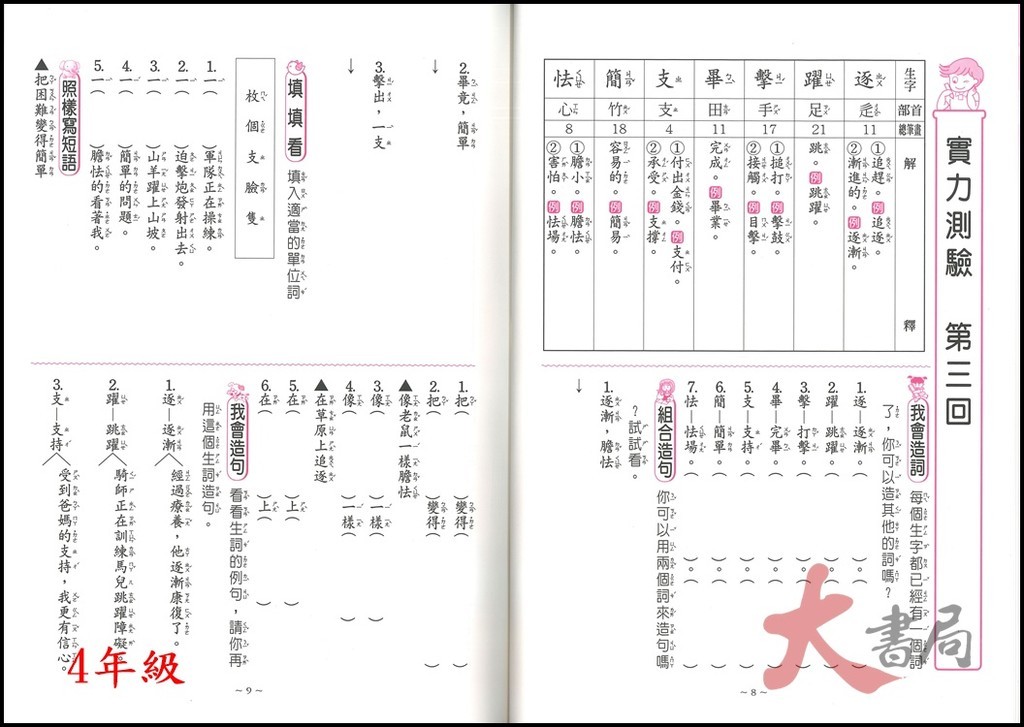 實力測驗 第三回
生字 部首 總筆畫 解釋
逐 辵 11 ①追趕。例追逐。 ②漸進的。例逐漸。
躍 足 21 跳。例跳躍。
擊 手 17 ①搥打。例擊鼓。 ②接觸。例目擊。
畢 田 11 完成。例畢業。
支 支 4 ①付出金錢。例支付。 ②承受。例支撐。
簡 竹 18 容易的。例簡易。
怯 心 8 ①膽小。例膽怯。 ②害怕。例怯場。
我會造詞 每個生字都已經有一個詞
了,你可以造其他的詞嗎?
1.逐—逐漸。( )。( )
2.躍—跳躍。( )。( )
3.擊—打擊。( )。( )
4.畢—完畢。( )。( )
5.支—支持。( )。( )
6.簡—簡單。( )。( )
7.怯—怯場。( )。( )
組合造句 你可以用兩個詞來造句嗎
?試試看。
1.逐漸,膽怯
↓
~8~
2.畢竟,簡單
↓
3.擊出,一支
↓
填填看 填入適當的單位詞
枚 個 支 臉 隻
1.一( )軍隊正在操練。
2.一( )迫擊炮發射出去。
3.一( )山羊躍上山坡。
4.一( )簡單的問題。
5.一( )膽怯的看著我。
照樣寫短語
▲把困難變得簡單
1.把( )變得( )
2.把( )變得( )
▲像老鼠一樣膽怯
3.像( )一樣( )
4.像( )一樣( )
▲在草原上追逐
5.在( )上( )
6.在( )上( )
我會造句 看看生詞的例句,請你再
用這個生詞造句。
1.逐—逐漸 經過療養,他逐漸康復了。
2.躍—跳躍 騎師正在訓練馬兒跳躍障礙。
3.支—支持 受到爸媽的支持,我更有信心。
~9~
4年級
大書局